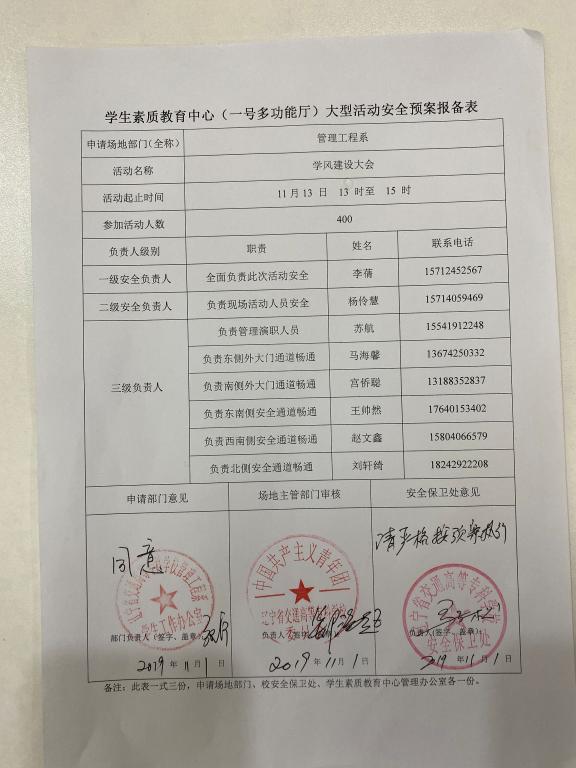 学生素质教育中心（一号多功能厅）大型活动安全预案报备表
申请场地部门(全称) 管理工程系
活动名称 学风建设大会
活动起止时间 11月13日 13 时至 15 时
参加活动人数 400
负责人级别 职责 姓名 联系电话
一级安全负责人 全面负责此次活动安全 李蒨 15712452567
二级安全负责人 负责现场活动人员安全 杨伶慧 15714059469
三级负责人
负责管理演职人员 苏航 15541912248
负责东侧外大门通道畅通 马海馨 13674250332
负责南侧外大门通道畅通 宫侨聪 13188352837
负责东南侧安全通道畅通 王帅然 17640153402
负责西南侧安全通道畅通 赵文鑫 15804066579
负责北侧安全通道畅通 刘轩绮 18242922208
申请部门意见 场地主管部门审核 安全保卫处意见
同意
请严格按预案执行
中国共产主义青年团
辽宁省交通高等专科学校
学生工作办公室
辽宁省交通高等专科学校
安全保卫处
部门负责人（签字、盖章） 负责人（签字、盖章） 负责人(签字、盖章)
2019 年 11 月 1 日 2019 年 11 月 1 日 2019 年 11 月 1 日
备注：此表一式三份，申请场地部门、校安全保卫处、学生素质教育中心管理办公室各一份。